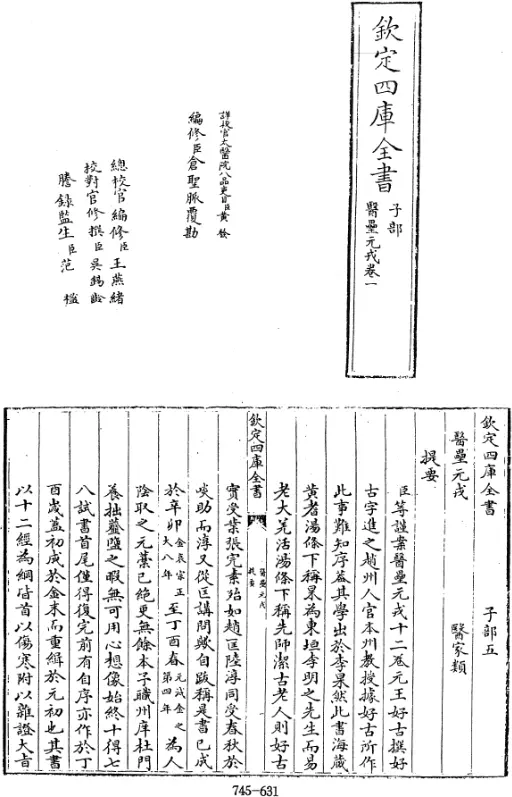 欽定四庫全書
子部
醫壘元戎卷一
詳校官太醫院八品吏目臣黃
編修臣倉聖脈覆勘
總校官編修臣王燕緒
校對官修撰臣吳錫齡
謄錄監生臣范
欽定四庫全書 子部五
醫壘元戎 醫家類
提要
臣等謹案醫壘元戎十二卷元王好古撰好
古字進之趙州人官本州教授據好古所作
此事難知序葢其學出於李杲然此書海藏
黃耆湯條下稱杲為東垣李明之先生而易
老大羌活湯條下稱先師潔古老人則好古
欽定四庫全書
醫壘元戎
提要
實受業張完素殆如趙匡陸淳同受春秋於
啖助而淳又從匡講問歟自跋稱是書已成
於辛卯金哀宗正大八年至丁酉春元滅金之第四年為人
陰取之元藁已絕更無餘本予職州庠杜門
養拙虀鹽之暇無可用心想像始終十得七
八試書首尾僅得復完前有自序亦作於丁
酉歲葢初成於金末而重緝於元初也其書
以十二經為綱皆首以傷寒附以雜證大㫖
745-631